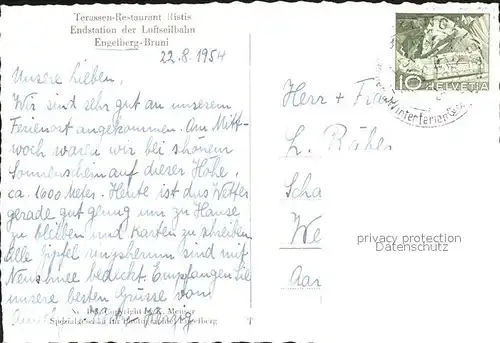 Terassen-Restaurant Ristis
Endstation der Luftseilbahn
Engelberg-Bruni
22.8.1954
Unsere Lieben,
Wir sind sehr gut an unserem
Ferienort angekommen. Am Mitt-
woch waren wir bei schönem
Sonnenschein auf dieser Höhe,
ca. 1600 Meter. Heute ist das Wetter
gerade gut genug um zu Hause
zu bleiben und Karten zu schreiben
Alle Gipfel ringsherum sind mit
Neuschnee bedeckt. Empfangen Sie
unsere besten Grüsse von
Copyright
Spezialgeschäft für Photographie, Engelberg
10 HELVETIA
Winterferien
Herr + Frau
privacy protection
www.ansichtskarten-center.de